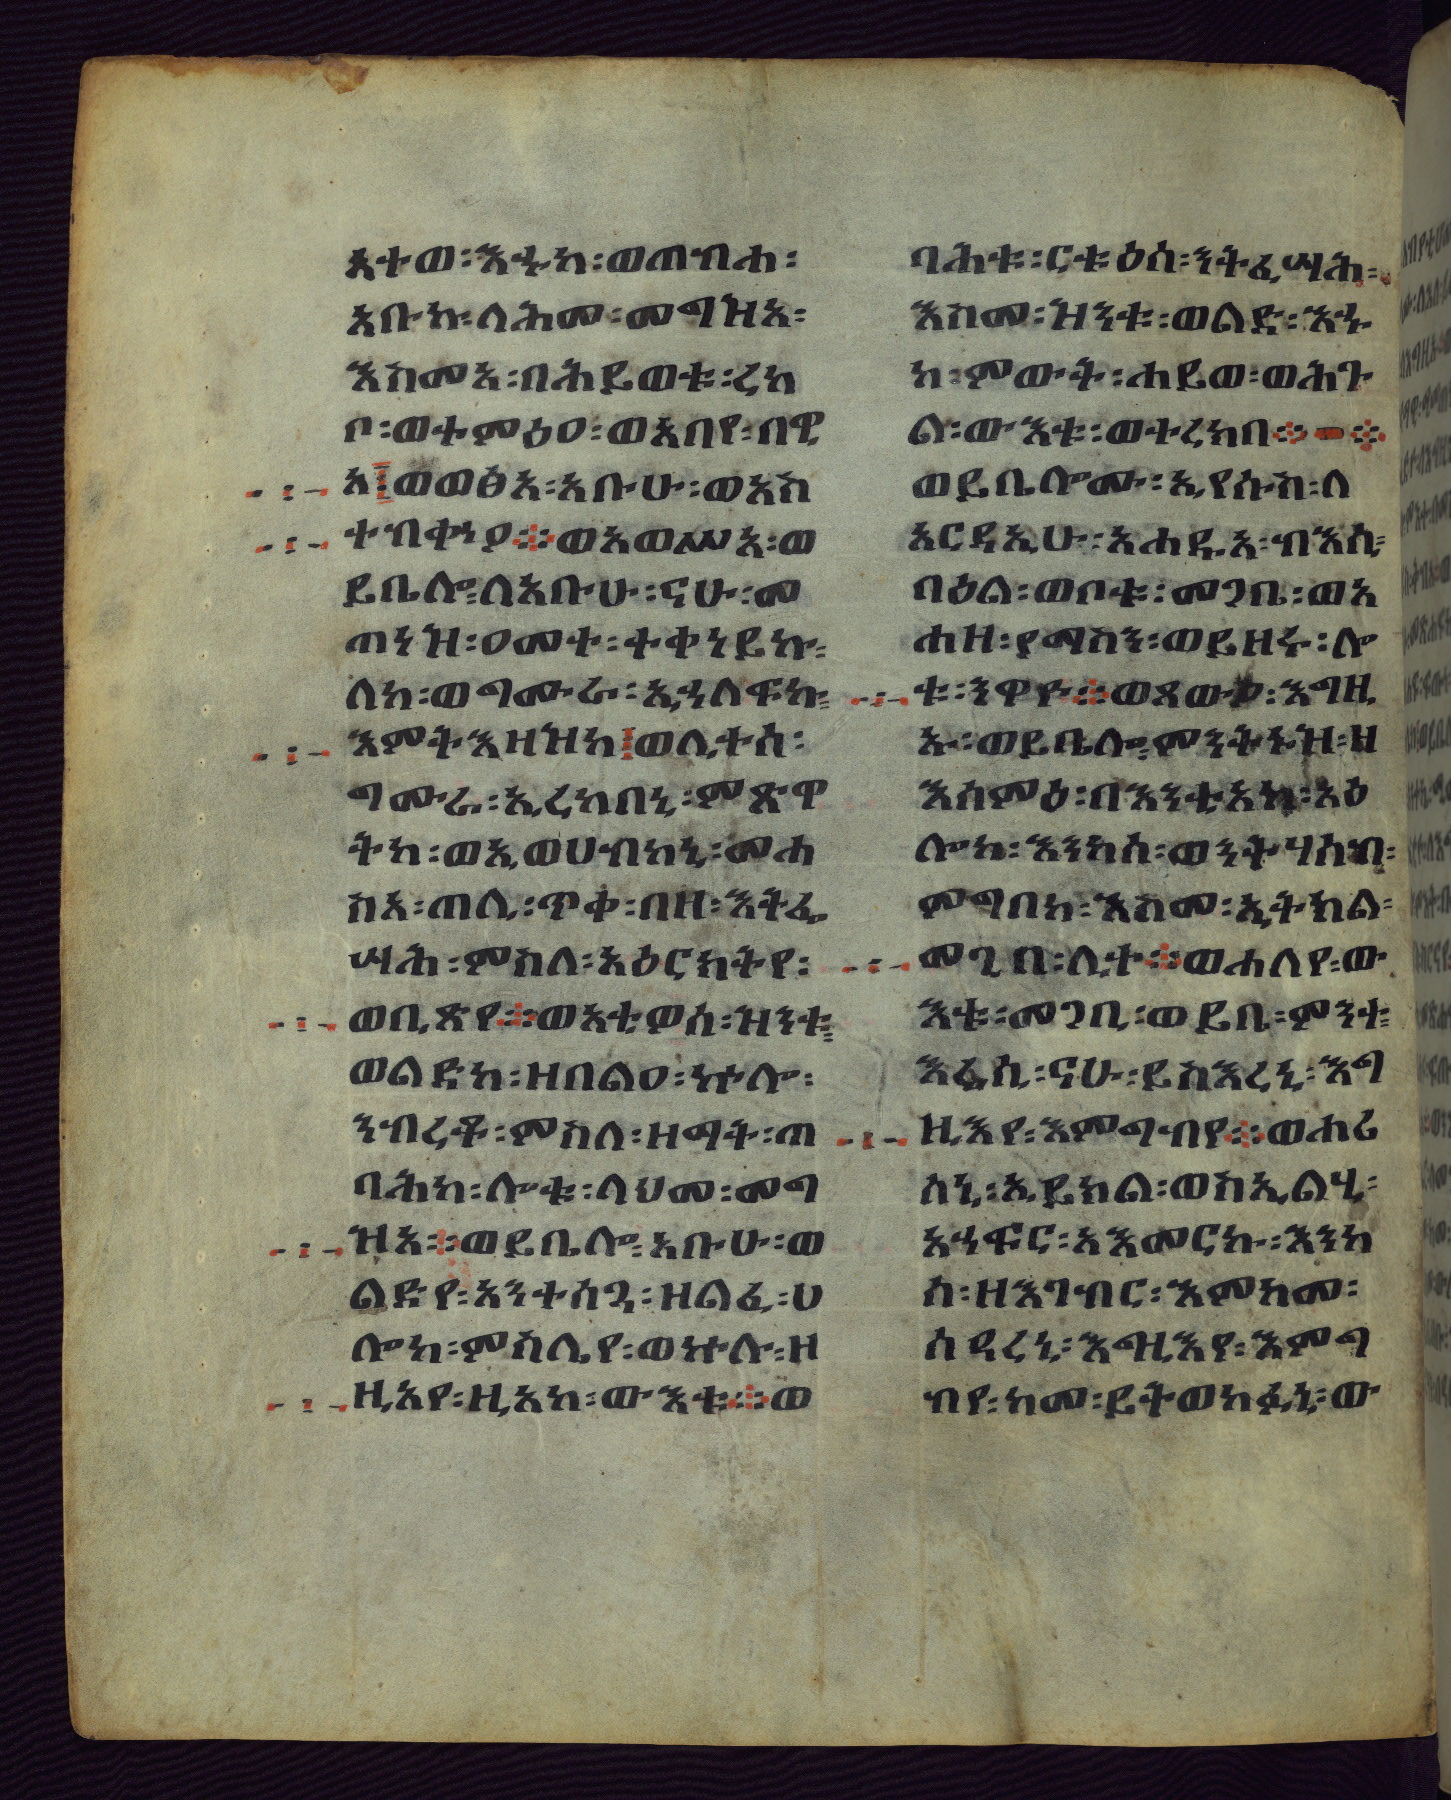 አተወ፡እኁከ፡ወጠብሐ፡
አቡከ፡ላሕመ፡መግዝአ፡
እስመአ፡በሕይወቱ፡ረከ
ቦ፡ወተምዕዐ፡ወአበየ፡በዊ
አ፡ወወፅአ፡አቡሁ፡ወአስ
ተብቍዖ፨ወአወሥአ፡ወ
ይቤሎ፡ለአቡሁ፡ናሁ፡መ
ጠነዝ፡ዐመተ፡ተቀነይኩ፡
ለከ፡ወግሙራ፡ኢኃለፍኩ፡
እምትእዛዝከ፡ወሊተሰ፡
ግሙራ፡ኢረከበኒ፡ምጽዋ
ትከ፡ወኢወሀብከኒ፡መሐ
ስአ፡ጠሊ፡ጥቀ፡በዘ፡እትፌ
ሣሕ፡ምስለ፡አዕርክትየ፡
ወቢጽየ፨ወአቲዎሰ፡ዝንቱ፡
ወልድከ፡ዘበልዐ፡ኵሎ፡
ንብረቶ፡ምስለ፡ዘማት፡ጠ
ባሕከ፡ሎቱ፡ላህመ፡መግ
ዝአ፨ወይቤሎ፡አቡሁ፡ወ
ልድየ፡አንተሰኒ፡ዘልፈ፡ሀ
ሎከ፡ምስሌየ፡ወኵሉ፡ዘ
ዚአየ፡ዚአከ፡ውእቱ፨ወ
ባሕቱ፡ርቱዕሰ፡ንትፈሣሕ፡
እስመ፡ዝንቱ፡ወልድ፡እኁ
ከ፡ምውት፡ሐይወ፡ወሕጉ
ል፡ውእቱ፡ወተረክበ፨፨
ወይቤሎሙ፡ኢየሱስ፡ለ
አርዳኢሁ፡አሐዱ፡እ፡ብእሲ፡
ባዕል፡ወቦቱ፡መጋቤ፡ወአ
ሐዘ፡ያማስን፡ወይዘሩ፡ሎ
ቱ፡ንዋዮ፨ወጸውዖ፡እግዚ
ኡ፡ወይቤሎ፡ምንትኑ፡ዝ፡ዘ
እሰምዕ፡በእንቲአከ፡አዕ
ሎከ፡እንከሰ፡ወንትሃሰብ፡
ምግበከ፡እስመ፡ኢትክል፡
መጊበ፡ሊተ፨ወሐለየ፡ው
እቱ፡መጋቢ፡ወይቤ፡ምንተ፡
እሬሲ፡ናሁ፡ይስእረኒ፡እግ
ዚእየ፡እምግብየ፨ወሐሪ
ሰኒ፡ኢይክል፡ወስኢልሂ፡
አኃፍር፡አእመርኩ፡እንከ
ሰ፡ዘእገብር፡እምከመ፡
ሰዳረኒ፡እግዚእየ፡እምግ
ብየ፡ከመ፡ይትወከፈኒ፡ው